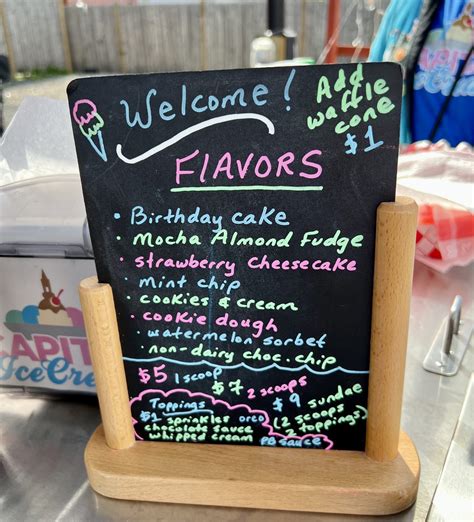 Welcome!
Add
waffle
cone
$1
FlAVORS
• Birthday cake
• Mocha Almond Fudge
• strawberry cheesecake
• mint chip
• cookies & cream
• cookie dough
• watermelon sorbet
• non-dairy choc. chip
$5 1 scoop
$7 2 scoops
$9 sundae
(2 scoops
2 toppings)
Toppings
$1 sprinkles oreo
chocolate sauce
whipped cream PB sauce
CAPIT
Ice Cre
CAPIT
Ice C